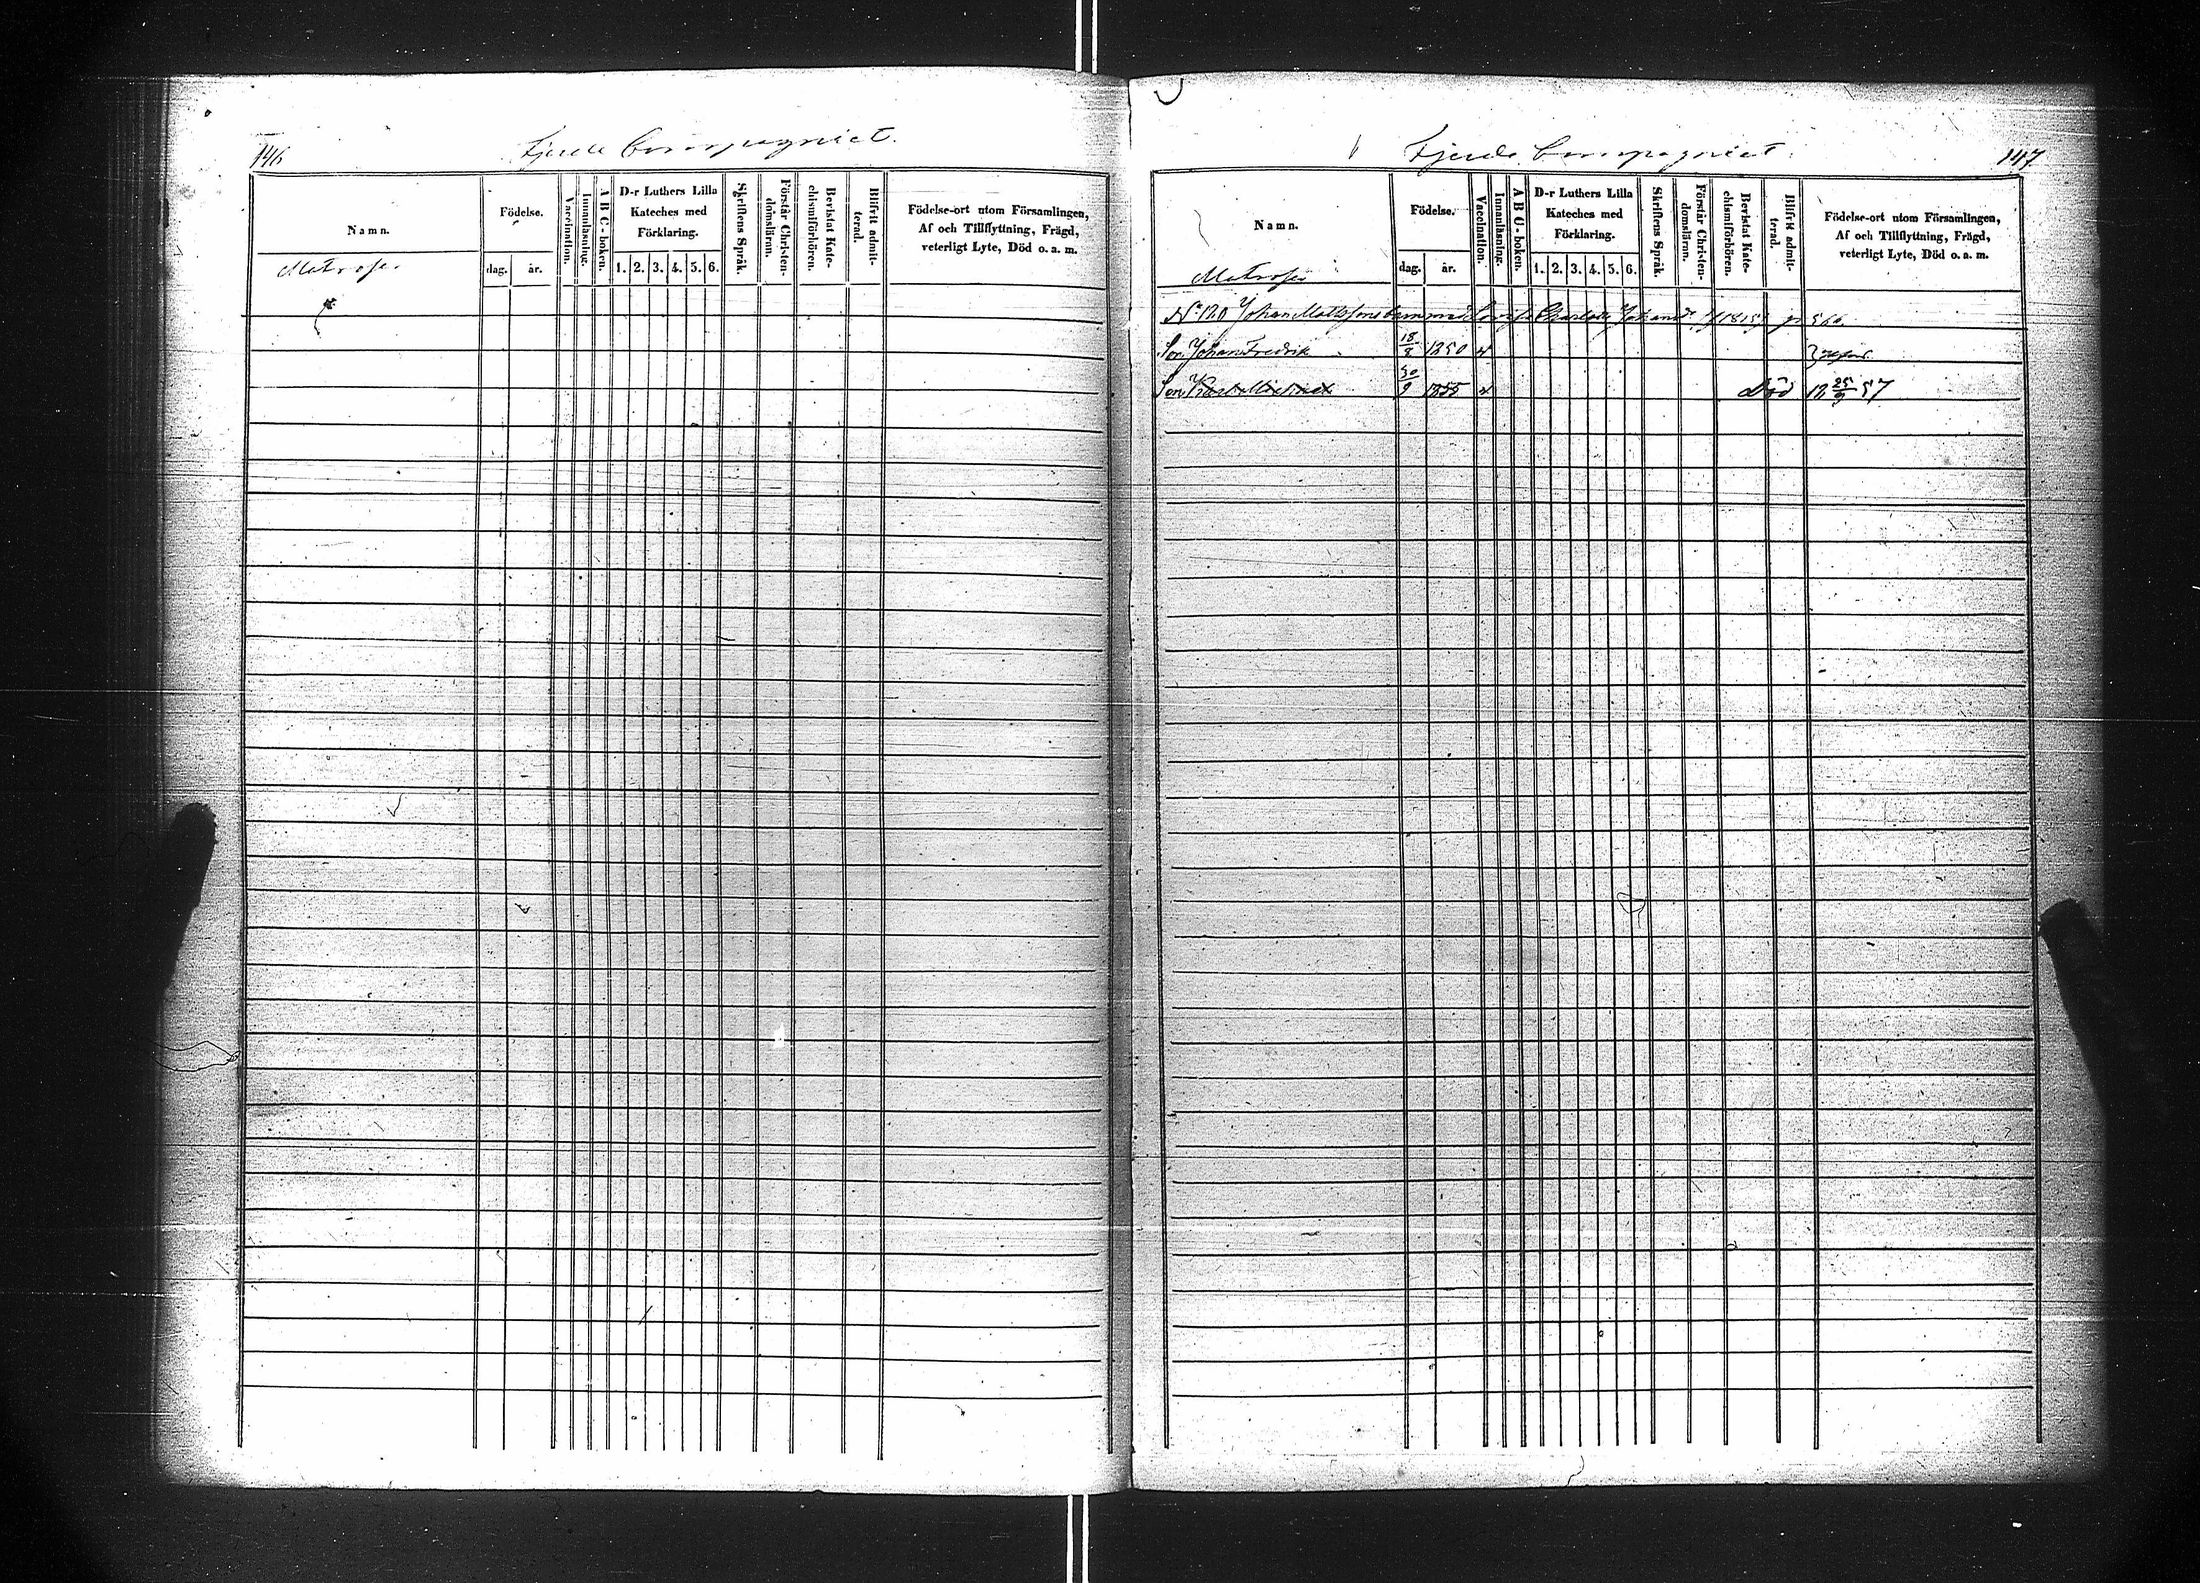 146
Fjerde Compagniet.
Namn.
Födelse.
dag. år.
Vaccination.
Innanläsning.
A B C - boken.
D-r Luthers Lilla
Kateches med
Förklaring.
1. 2. 3. 4. 5. 6.
Skriftens Språk.
Förstår Christen-
domsläran.
Bevistat Kate-
chismiförhören.
Blifvit admit-
terad.
Födelse-ort utom Församlingen,
Af och Tillflyttning, Frägd,
veterligt Lyte, Död o. a. m.
Matroser
Fjerde Compagniet.
147
Namn.
Födelse.
dag. år.
Vaccination.
Innanläsning.
A B C - boken.
D-r Luthers Lilla
Kateches med
Förklaring.
1. 2. 3. 4. 5. 6.
Skriftens Språk.
Förstår Christen-
domsläran.
Bevistat Kate-
chismiförhören.
Blifvit admit-
terad.
Födelse-ort utom Församlingen,
Af och Tillflyttning, Frägd,
veterligt Lyte, Död o. a. m.
Matroser
No 120 Johan Mattssons barn med Charlotta
Son Johan Fredrik 18/8 1850
Son Karl 30/9 1855 Död 18 25/9 57